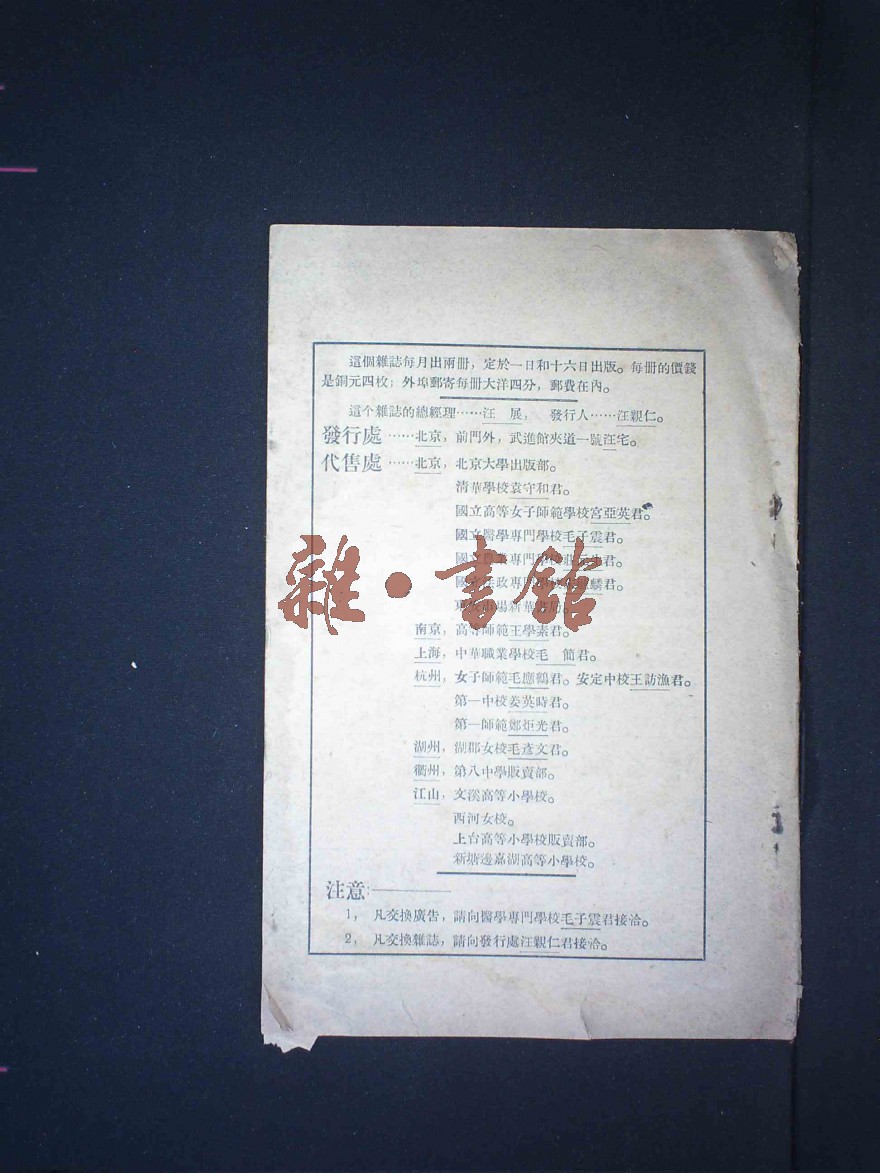 這個雜誌每月出兩冊，定於一日和十六日出版。每冊的價錢
是銅元四枚；外埠郵寄每冊大洋四分，郵費在內。
這个雜誌的總經理……汪　展，　發行人……汪親仁。
發行處……北京，前門外，武進館夾道一號汪宅。
代售處……北京，北京大學出版部。
清華學校袁守和君。
國立高等女子師範學校宮亞英君。
國立醫學專門學校毛子震君。
國立 專門學 君。
國立法政專門學 麟君。
東 市場新華書局。
雜·書館
南京，高等師範王學素君。
上海，中華職業學校毛　簡君。
杭州，女子師範毛應鶴君。安定中校王訪漁君。
第一中校姜英時君。
第一師範鄭炬光君。
湖州，湖郡女校毛彥文君。
衢州，第八中學販賣部。
江山，文溪高等小學校。
西河女校。
上台高等小學校販賣部。
新塘邊嘉湖高等小學校。
注意：————
1，凡交換廣告，請向醫學專門學校毛子震君接洽。
2，凡交換雜誌，請向發行處汪親仁君接洽。